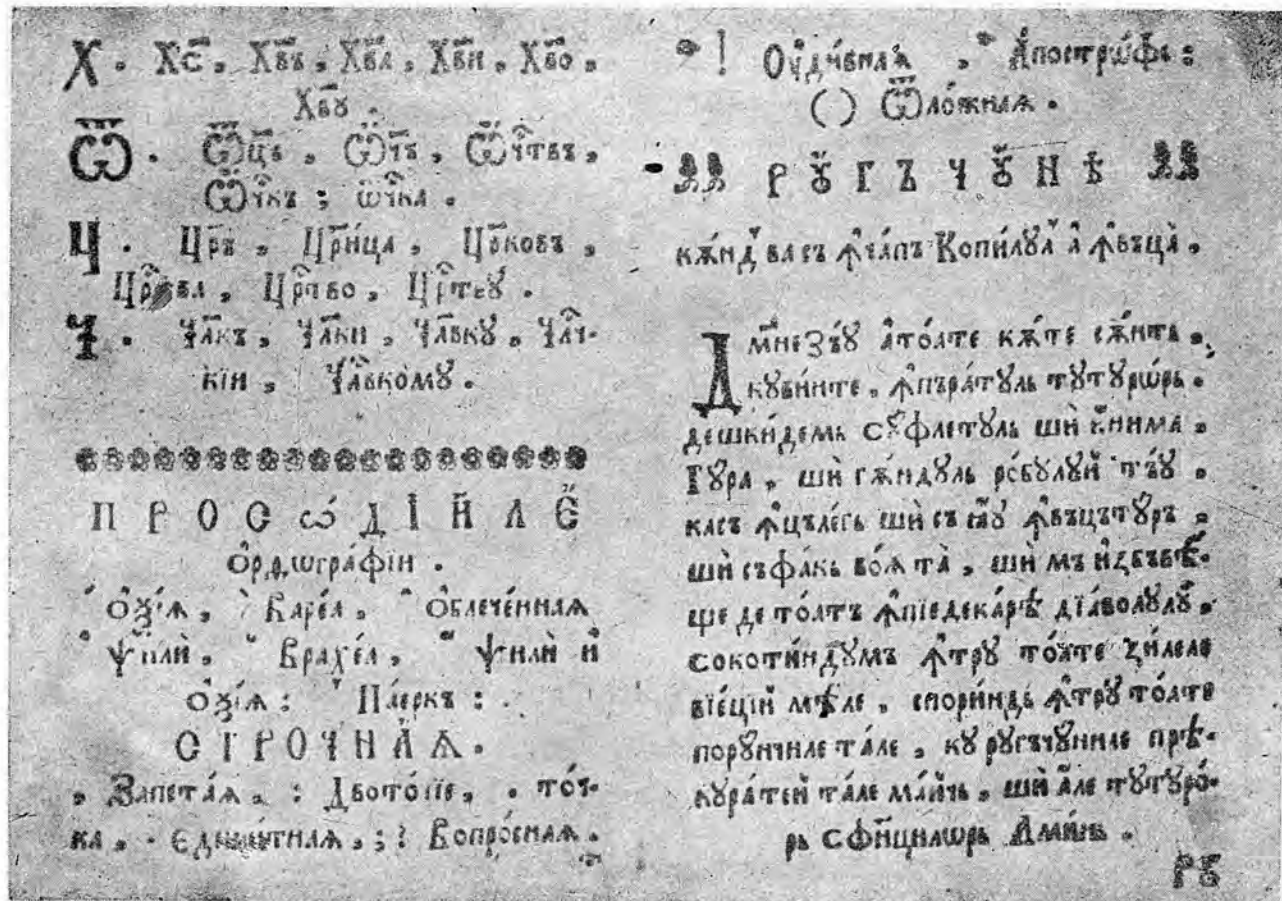 Х. Хс҃, Хв҃ъ, Хв҃а, Хв҃и, Хв҃о,
Хв҃ꙋ.
Ѿ. Ѿц҃ъ, Ѿч҃ъ, Ѿч҃твъ,
Ѿч҃къ; ѿч҃ка.
Ц. Цр҃ъ, Цр҃и́ца, Цр҃ковъ,
Цр҃ква, Цр҃тво, Цр҃твꙋ.
Ч. Чл҃къ, Чл҃ки, Чл҃вкꙋ, Чл҃ч-
кїи, Чл҃вкомꙋ.
ПРОСѠ́ДІИЛЕ
о҆рѳѡгра́фїи.
́ о҆ѯі́ѧ, ̀ Варе́а, ̑ О҆блече́ннаѧ
҆ Ѱилѝ, ̆ Врахе́а, ҆́ Ѱилѝ и҆
о҆ѯі́ѧ: Па́еркъ:
СТРОЧНА́Ѧ.
, Запета́ѧ, : Двото́чїе, . то́ч-
ка, · Єдин, ;? Вопро́снаѧ.
! Оу҆ди́внаѧ, ҆Апостро́фъ:
( ) Ѿло́жнаѧ.
РꙊГЪЧꙊНѢ
кѫ́нд ва съ ꙟ҆чѧпъ Копи́лꙋл а҆ ꙟ҆въца̀.
Дм҃незѣ́ꙋ а҆то́ате кѫ́те сѫ́нть
кꙋви́нте, ꙟ҆пъра́тꙋль тꙋтꙋрѡрь.
дешки́демь сꙋ́флетꙋль шѝ и҆́нима
гꙋра, шѝ гѫ́ндꙋль ро́бꙋлꙋй тъ́ꙋ
касъ ꙟ҆цъле́гь шѝ съ мъ́ꙋ ꙟ҆въцътꙋръ
шѝ съфа́кь во́ѧ та̀, шѝ мъ и҆збъвѣ́-
ще де то́атъ ꙟ҆пїедека́рѣ дїа́волꙋлꙋ̆,
сокоти́ндꙋмъ ꙟ҆трꙋ то́ате зи́леле
вїе́ций мѣ́ле, спори́ндь ꙟ҆трꙋ то́ате
порꙋ́нчиле та́ле, кꙋ рꙋгъчꙋ́ниле прѣ-
кꙋра́тей та́ле ма́йчь, шѝ а҆́ле тꙋтꙋро́-
рь сфи́нцилѡрь Ами́нь.
рв